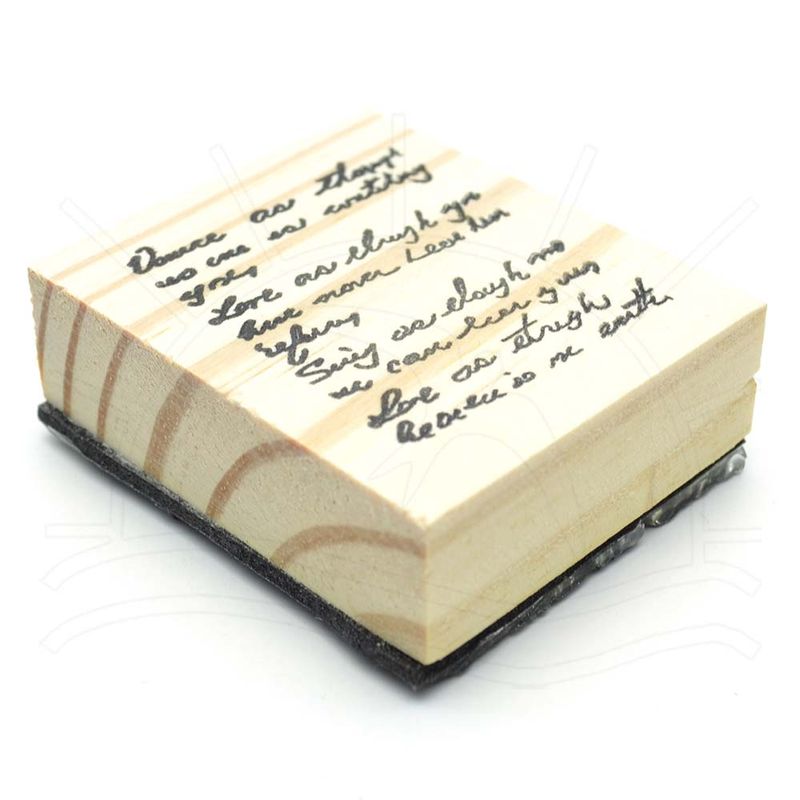 Dance as though
no one is watching
you,
Love as though you
have never been
Sing as though no
one can hear you
Love as though
heaven is on earth